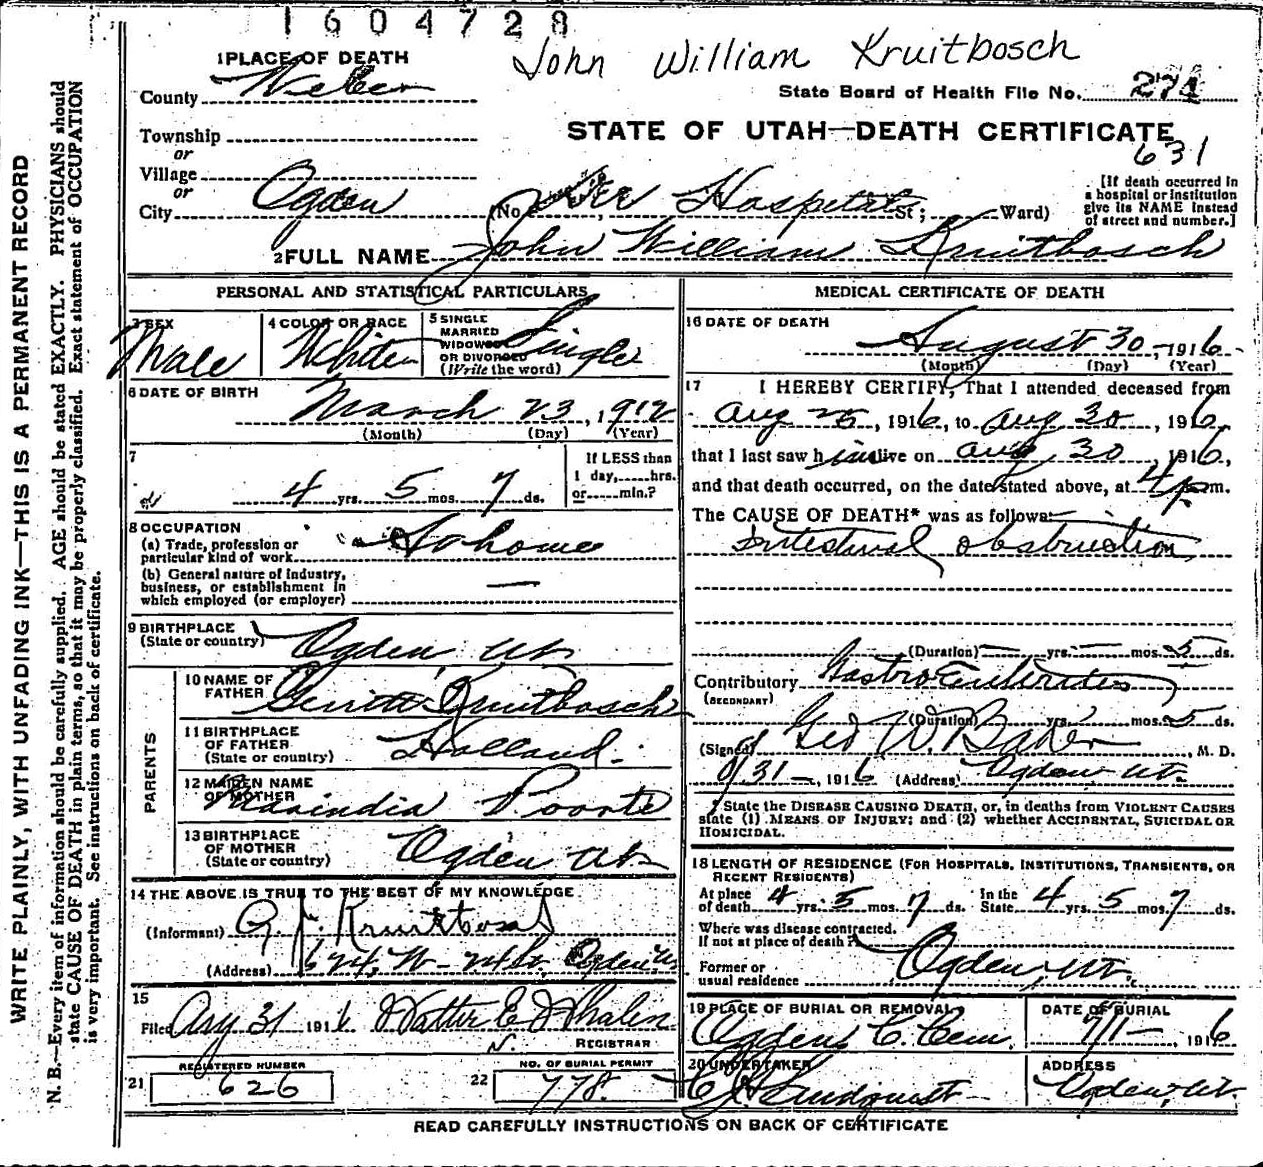 1604728
John William Kruitbosch
1 PLACE OF DEATH
County Weber
State Board of Health File No. 274
STATE OF UTAH—DEATH CERTIFICATE
631
Township
or
Village
or
City Ogden (No. Dee Hospital St; Ward)
[If death occurred in a hospital or institution give its NAME instead of street and number.]
2 FULL NAME John William Kruitbosch
PERSONAL AND STATISTICAL PARTICULARS
3 SEX Male
4 COLOR OR RACE White
5 SINGLE MARRIED WIDOWED OR DIVORCED (Write the word) Single
6 DATE OF BIRTH March 23, 1912
(Month) (Day) (Year)
7
4 yrs. 5 mos. 7 ds.
If LESS than 1 day, hrs. or min.?
8 OCCUPATION
(a) Trade, profession or particular kind of work At home
(b) General nature of industry, business, or establishment in which employed (or employer) —
9 BIRTHPLACE
(State or country) Ogden Ut
PARENTS
10 NAME OF FATHER Gerrit Kruitbosch
11 BIRTHPLACE OF FATHER (State or country) Holland
12 MAIDEN NAME OF MOTHER Poorte
13 BIRTHPLACE OF MOTHER (State or country) Ogden Ut
14 THE ABOVE IS TRUE TO THE BEST OF MY KNOWLEDGE
(Informant) G. J. Kruitbosch
(Address) 624 W- 24 St. Ogden Ut
15
Filed Aug 31 1916 Walter E. Whalen
REGISTRAR
REGISTERED NUMBER
21 626
NO. OF BURIAL PERMIT
22 778
MEDICAL CERTIFICATE OF DEATH
16 DATE OF DEATH
August 30, 1916
(Month) (Day) (Year)
17 I HEREBY CERTIFY, That I attended deceased from
Aug 25, 1916, to Aug 30, 1916,
that I last saw him alive on Aug 30, 1916,
and that death occurred, on the date stated above, at 4 p m.
The CAUSE OF DEATH* was as follows:
Intestinal obstruction
(Duration) — yrs. — mos. 5 ds.
Contributory Gastro Enteritis
(SECONDARY)
(Duration) yrs. mos. 5 ds.
(Signed) Geo W. Baker, M. D.
8/31—, 1916 (Address) Ogden Ut.
* State the DISEASE CAUSING DEATH, or, in deaths from VIOLENT CAUSES
state (1) MEANS OF INJURY; and (2) whether ACCIDENTAL, SUICIDAL OR
HOMICIDAL.
18 LENGTH OF RESIDENCE (FOR HOSPITALS, INSTITUTIONS, TRANSIENTS, OR
RECENT RESIDENTS)
At place of death 4 yrs. 5 mos. 7 ds. In the State 4 yrs. 5 mos. 7 ds.
Where was disease contracted.
If not at place of death?
Former or usual residence Ogden, Ut.
19 PLACE OF BURIAL OR REMOVAL
Ogden C. Cem.
DATE OF BURIAL
1916
20 UNDERTAKER
Lindquist
ADDRESS
Ogden, Ut.
READ CAREFULLY INSTRUCTIONS ON BACK OF CERTIFICATE
WRITE PLAINLY, WITH UNFADING INK—THIS IS A PERMANENT RECORD
N. B.—Every item of information should be carefully supplied. AGE should be stated EXACTLY. PHYSICIANS should
state CAUSE OF DEATH in plain terms, so that it may be properly classified. Exact statement of OCCUPATION
is very important. See instructions on back of certificate.